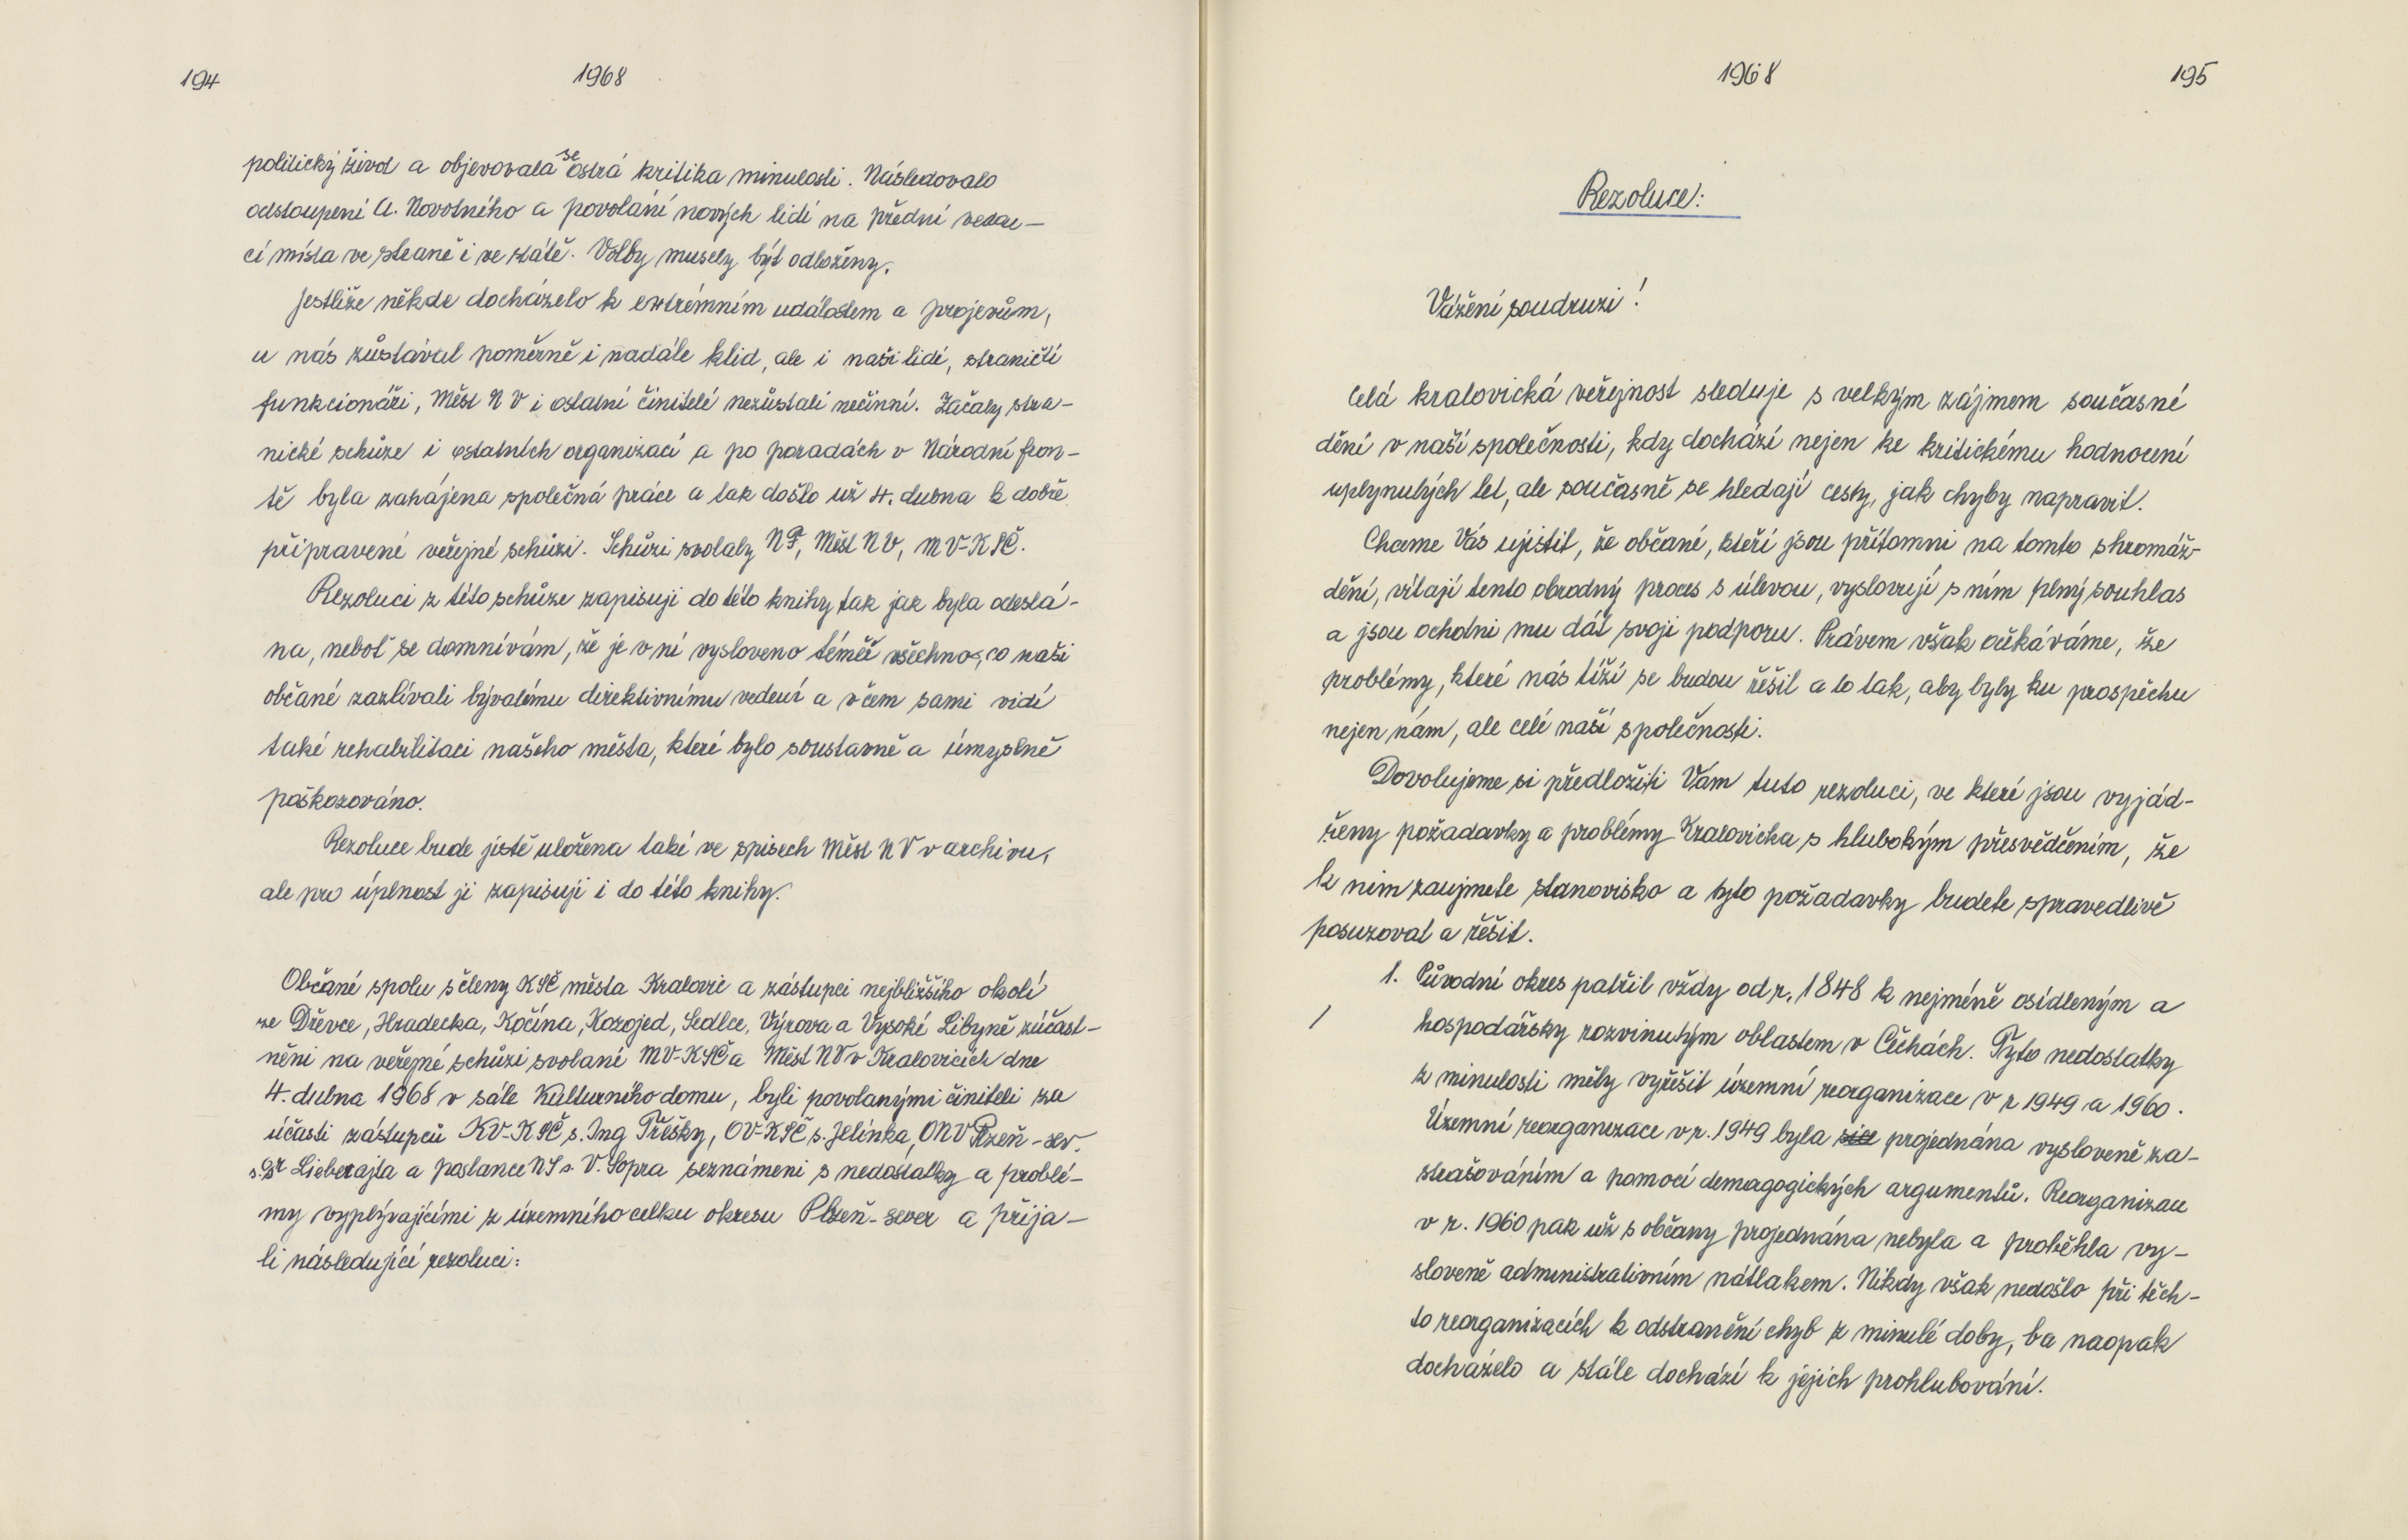 194
1968
politický život a objevovala se ostrá kritika minulosti. Následovalo
odstoupení A. Novotného a povolání nových lidí na přední vedou-
cí místa ve straně i ve státě. Volby musely být odloženy.
Jestliže někde docházelo k extrémním událostem a projevům,
u nás zůstával poměrně i nadále klid, ale i naši lidé, straničtí
funkcionáři, Měst NV i ostatní činitelé nezůstali nečinní. Začaly stra-
nické schůze i ostatních organizací a po poradách v Národní fron-
tě byla zahájena společná práce a tak došlo už 4. dubna k dobře
připravené veřejné schůzi. Schůzi svolaly NF, Měst NV, MV-KSČ.
Rezoluci z této schůze zapisuji do této knihy tak jak byla odeslá-
na, neboť se domnívám, že je v ní vysloveno téměř všechno, co naši
občané zazlívali bývalému direktivnímu vedení a v čem sami vidí
také rehabilitaci našeho města, které bylo soustavně a úmyslně
poškozováno.
Rezoluce bude jistě uložena také ve spisech Měst NV v archivu,
ale pro úplnost ji zapisuji i do této knihy.
Občané spolu s členy KSČ města Kralovic a zástupci nejbližšího okolí
ze Dřevce, Hradecka, Kočína, Kozojed, Sedlce, Výrova a Vysoké Libyně zúčast-
něni na veřejné schůzi svolané MV-KSČ a Měst NV v Kralovicích dne
4. dubna 1968 v sále Kulturního domu, byli povolanými činiteli za
účasti zástupců KV-KSČ s. Ing Třešky, OV-KSČ s. Jelínka, ONV Plzeň-sev.
s. Dr Lieberajta a poslance NS s. V. Sopra seznámeni s nedostatky a problé-
my vyplývajícími z územního celku okresu Plzeň-sever a přija-
li následující rezoluci:
1968
195
Rezoluce:
Vážení soudruzi!
Celá kralovická veřejnost sleduje s velkým zájmem současné
dění v naší společnosti, kdy dochází nejen ke kritickému hodnocení
uplynulých let, ale současně se hledají cesty, jak chyby napravit.
Chceme Vás ujistit, že občané, kteří jsou přítomni na tomto shromáž-
dění, vítají tento obrodný proces s úlevou, vyslovují s ním plný souhlas
a jsou ochotni mu dát svoji podporu. Právem však očekáváme, že
problémy, které nás tíží se budou řešit a to tak, aby byly ku prospěchu
nejen nám, ale celé naší společnosti.
Dovolujeme si předložiti Vám tuto rezoluci, ve které jsou vyjád-
řeny požadavky a problémy Kralovicka s hlubokým přesvědčením, že
k nim zaujmete stanovisko a tyto požadavky budete spravedlivě
posuzovat a řešit.
1. Původní okres patřil vždy od r. 1848 k nejméně osídleným a
/ hospodářsky rozvinutým oblastem v Čechách. Tyto nedostatky
z minulosti měly vyřešit územní reorganizace v r 1949 a 1960.
Územní reorganizace v r. 1949 byla sice projednána vysloveně za-
strašováním a pomocí demagogických argumentů. Reorganizace
v r. 1960 pak už s občany projednána nebyla a proběhla vy-
sloveně administrativním nátlakem. Nikdy však nedošlo při těch-
to reorganizacích k odstranění chyb z minulé doby, ba naopak
docházelo a stále dochází k jejich prohlubování.